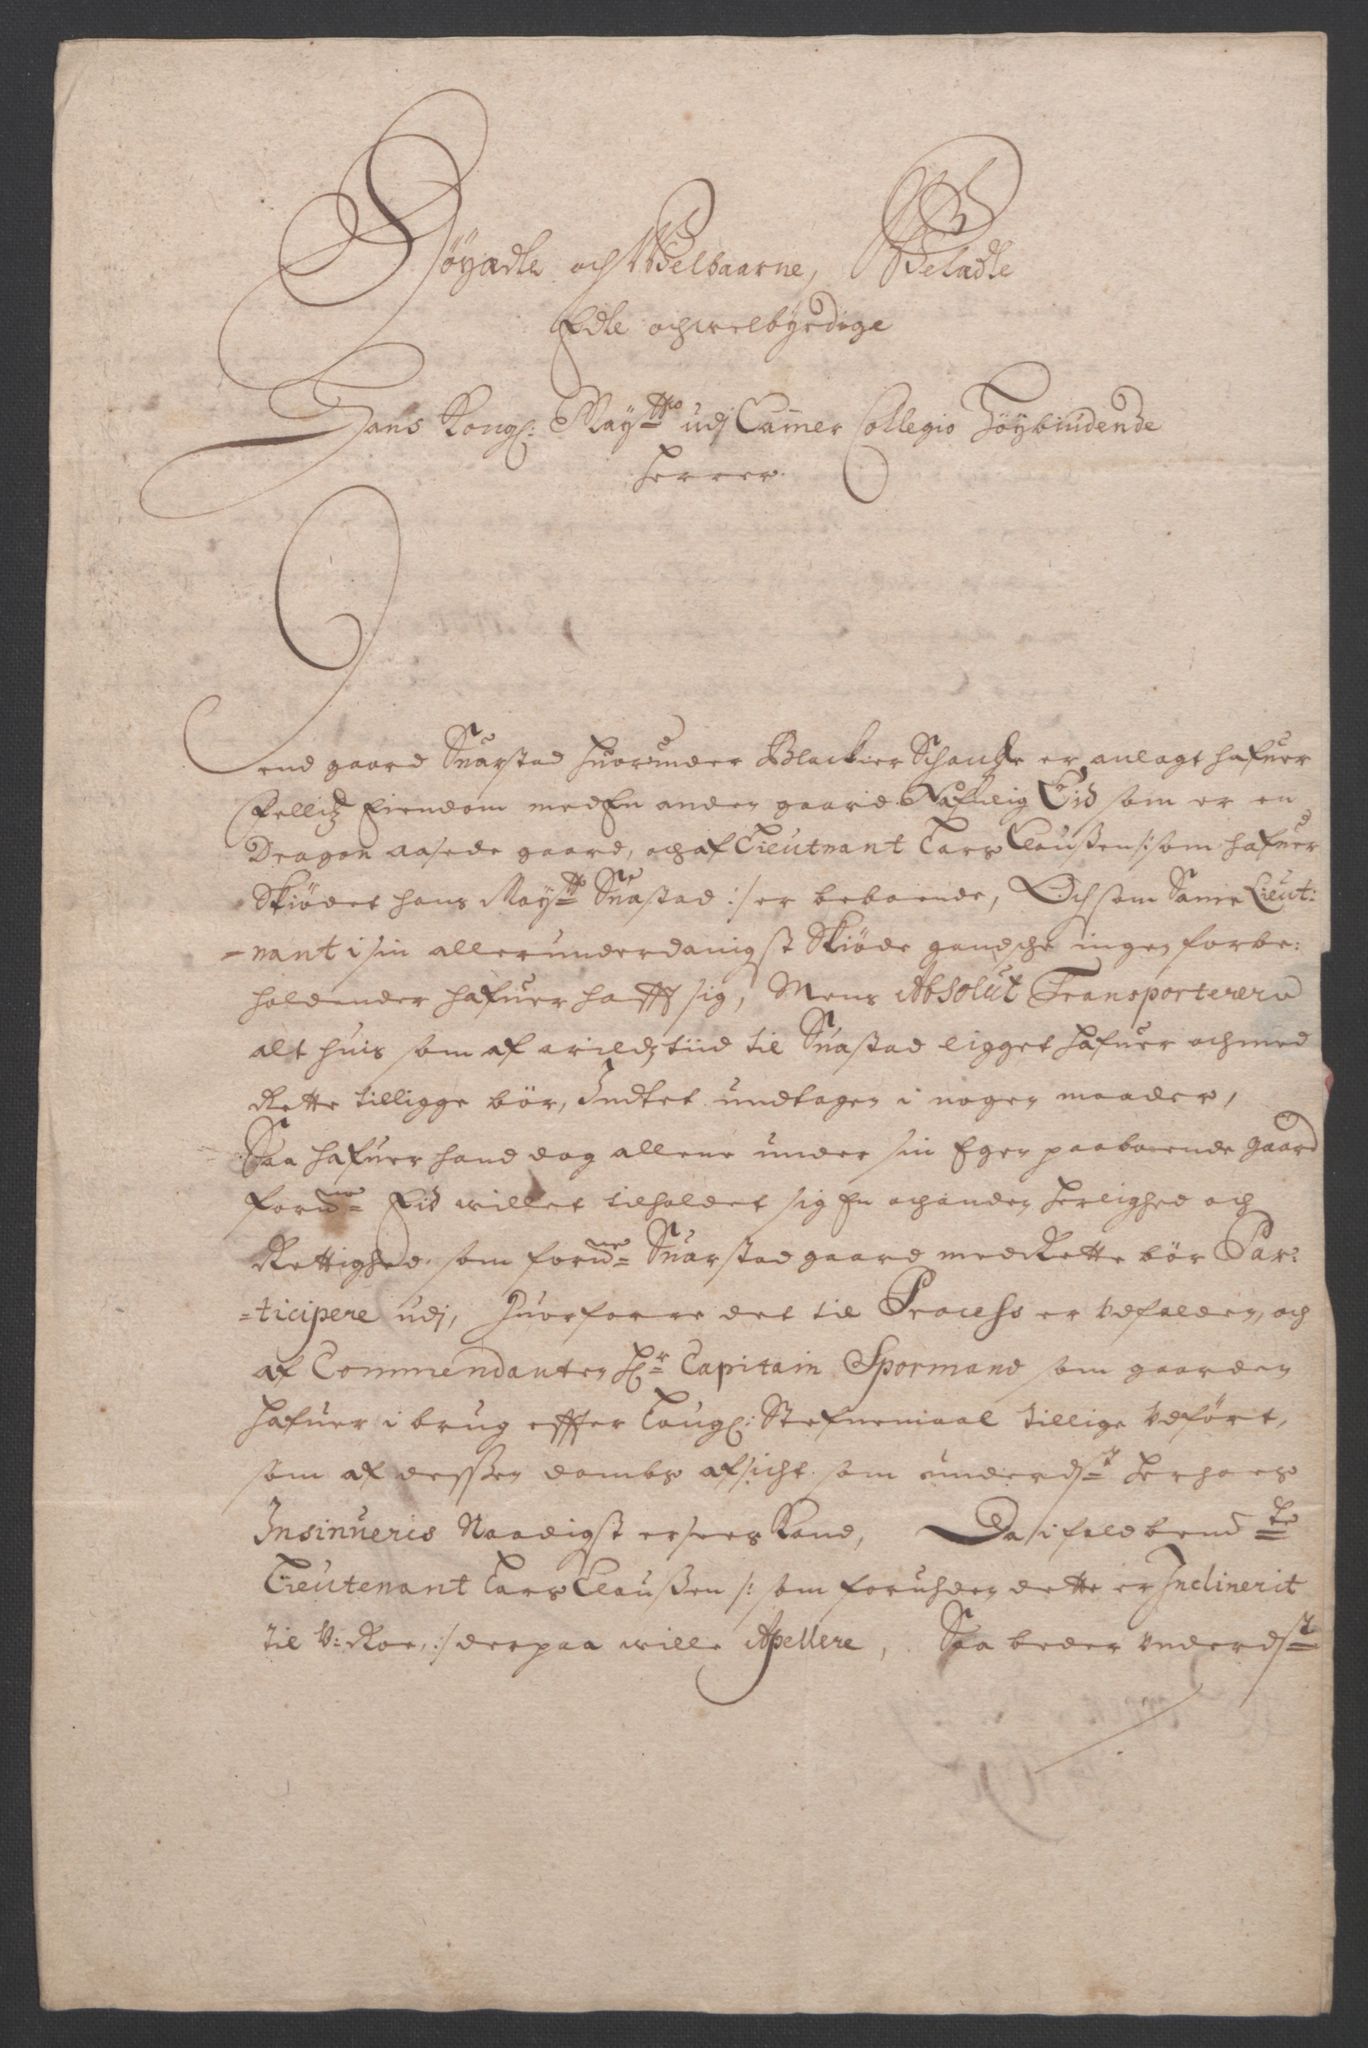 Höyædle och Welbaarne, Welædle
Edle och welbyrdige
Hans Kongl: Maytts udj Cammer Collegio Höybiudende
Herrer
End gaard Snarstad huorunder Blackier Schantze er anlagt hafuer
Fellitz Eiendom med En anden gaard Nafnlig Eid som er en
Dragon aasede gaard, och af Lieutnant Lars Claußen /: som hafuer
Skiödet hans Maytt Snastad :/ er beboende, Och som Samme Lieut:
-nant i sin allerunderdanigst Skiöde gandsche ingen forbe:
holdender hafuer hafft sig, Mens Absolut Transporterer
alt huis som af arildztiid til Snastad ligget hafuer och med
Rette tilligge bör, Indtet undtagen i nogen maader,
Saa hafuer hand dog allene under sin Egen paaboende gaard
forne Eid willet tilholdet sig En och anden herlighed och
Rettighed som forne Snarstad gaard med Rette bör Par:
-ticipere udj, Huorforre det til Process er udfalden, och
af Commendanten Hr Capitain Spormand som gaarden
hafuer i brug effter Laugl: Stefnemaal tillige udfört,
som af dessen dombs afsicht som underdst herhoes
Insinueris Naadigst erseers Kand, Da ifald bemte
Lieutenant Lars Claußen /: som foruhden dette er Inclinerit
til U:Roe, :/ derpaa wille Apellere, Saa beder underdst